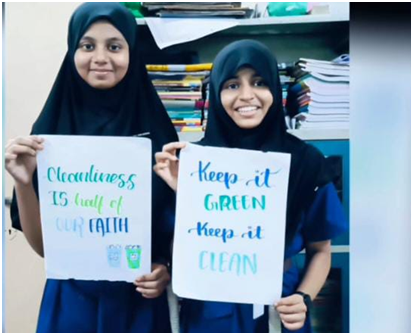 Cleanliness
IS half of
OUR FAITH
Keep it
GREEN
Keep it
CLEAN